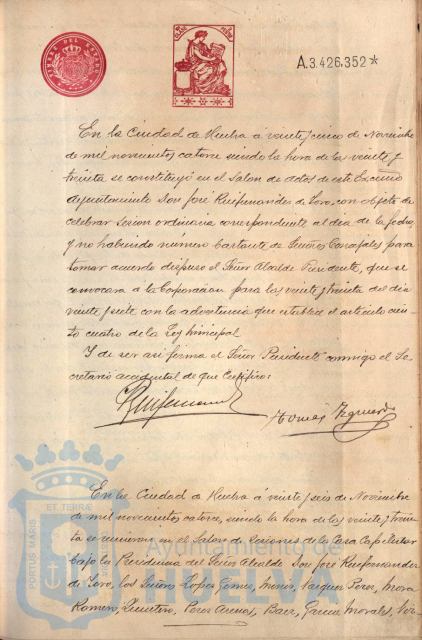 TIMBRE DEL ESTADO
A.3.426.352*
En la Ciudad de Huelva á veinte y cinco de Noviembre
de mil novecientos catorce siendo la hora de las veinte y
treinta se constituyó en el Salon de actos de este Excmo
Ayuntamiento Don José Ruifernandez de Toro, con objeto de
celebrar sesion ordinaria correspondiente al dia de la fecha,
y no habiendo número bastante de Señores Concejales para
tomar acuerdo dispuso el Señor Alcalde Presidente, que se
convocara á la Corporacion para las veinte y treinta del dia
veinte y siete con la advertencia que establece el artículo cien-
to cuatro de la Ley Municipal
Y de ser asi firma el Señor Presidente conmigo el Se-
cretario accidental de que Certifico:
Ruifernandez
Tomás Izquierdo
En la Ciudad de Huelva á veinte y seis de Noviembre
de mil novecientos catorce, siendo la hora de las veinte y trein-
ta se reunieron en el Salon de sesiones de las Casas Capitulares
bajo la Presidencia del Señor Alcalde Don José Ruifernandez
de Toro, los Señores Lopez Gomez, Vazquez Perez, Mora
Romero, Quintero, Perez Baez, Garcia Morales,
PORTUS MARIS ET TERRAE
Ayuntamiento de
HUELVA